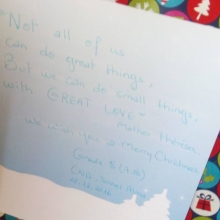 "Not all of us
can do great things,
But we can do small things,
with GREAT LOVE"
Mother Theresa
we wish you a Merry Christmas
Grade 8